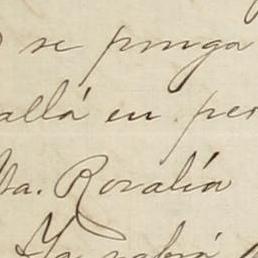 se ponga
allá en per
Sta. Rosalía
Ya sabrá